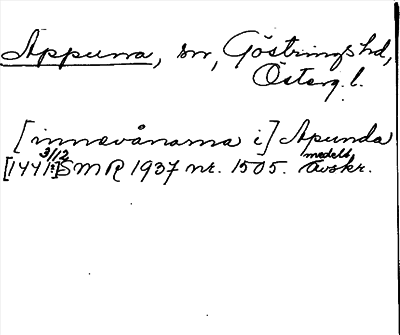 Appuna, sn, Göstrings hd,
Österg. l.
[innevånarna i] Apunda
[1441 3/12] SMR 1937 nr. 1505. medelt. avskr.